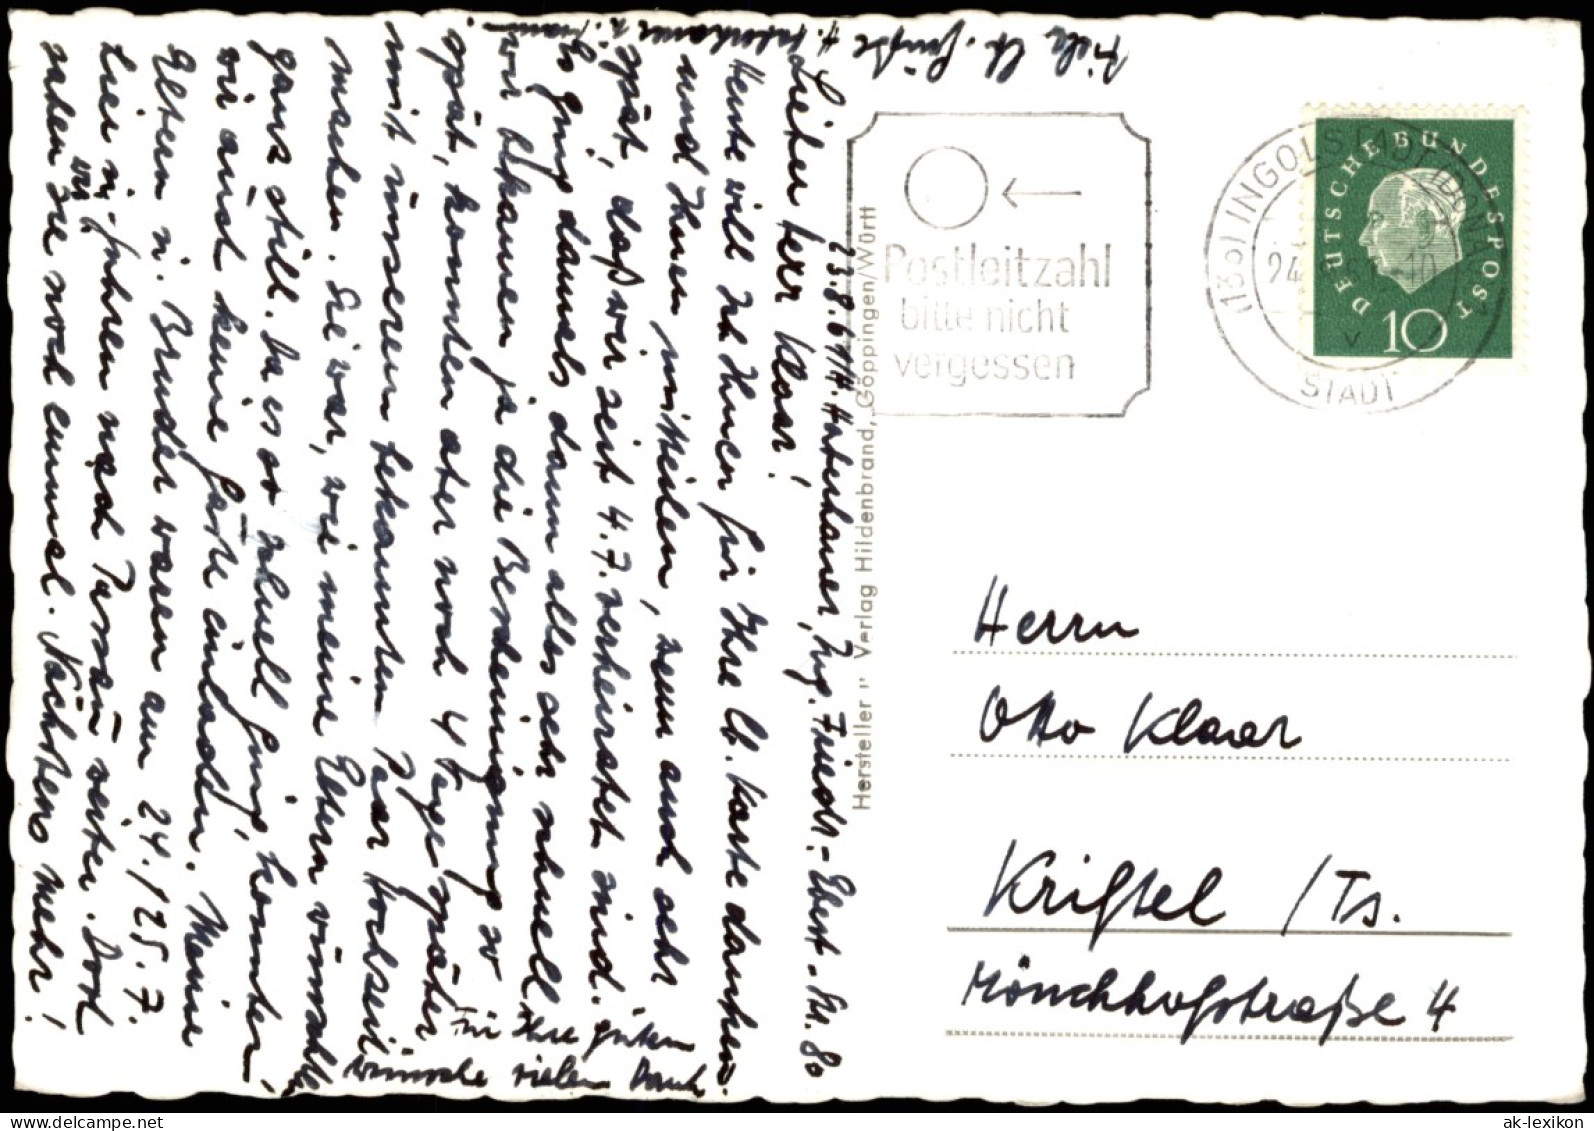 23.8.61/H. Haberhauer, Ing. Friedr.-Ebert-Str. 80
Lieber Herr Klaar!
Heute will ich Ihnen für Ihre lb. Karte danken
und Ihnen mitteilen, wenn auch sehr
spät, daß wir seit 4.7. verheiratet sind.
Es ging damals dann alles sehr schnell,
wir bekamen ja die Bescheinigung so
spät, konnten aber noch 4 Tage später
mit unserem bekannten Paar Hochzeit
machen. Sie war, wie meine Eltern
ganz still. Da es so schnell ging, konnten
wir auch keine Gäste einladen. Meine
Eltern u. Bruder waren am 24./25.7.
hier u. fuhren nach weiter. Dort
sahen wir sie noch einmal. Nächstens mehr!
Für Ihre guten
Wünsche vielen Dank
Viele lb. Grüße H. Haberhauer u. Frau.
Hersteller u. Verlag Hildenbrand, Göppingen/Württ
Postleitzahl
bitte nicht
vergessen
(13b) INGOLSTADT (DONAU)
24
-10
v
STADT
DEUTSCHE BUNDESPOST
10
Herrn
Otto Klaar
Kriftel /Ts.
Mönchhofstraße 4
ak-lexikon